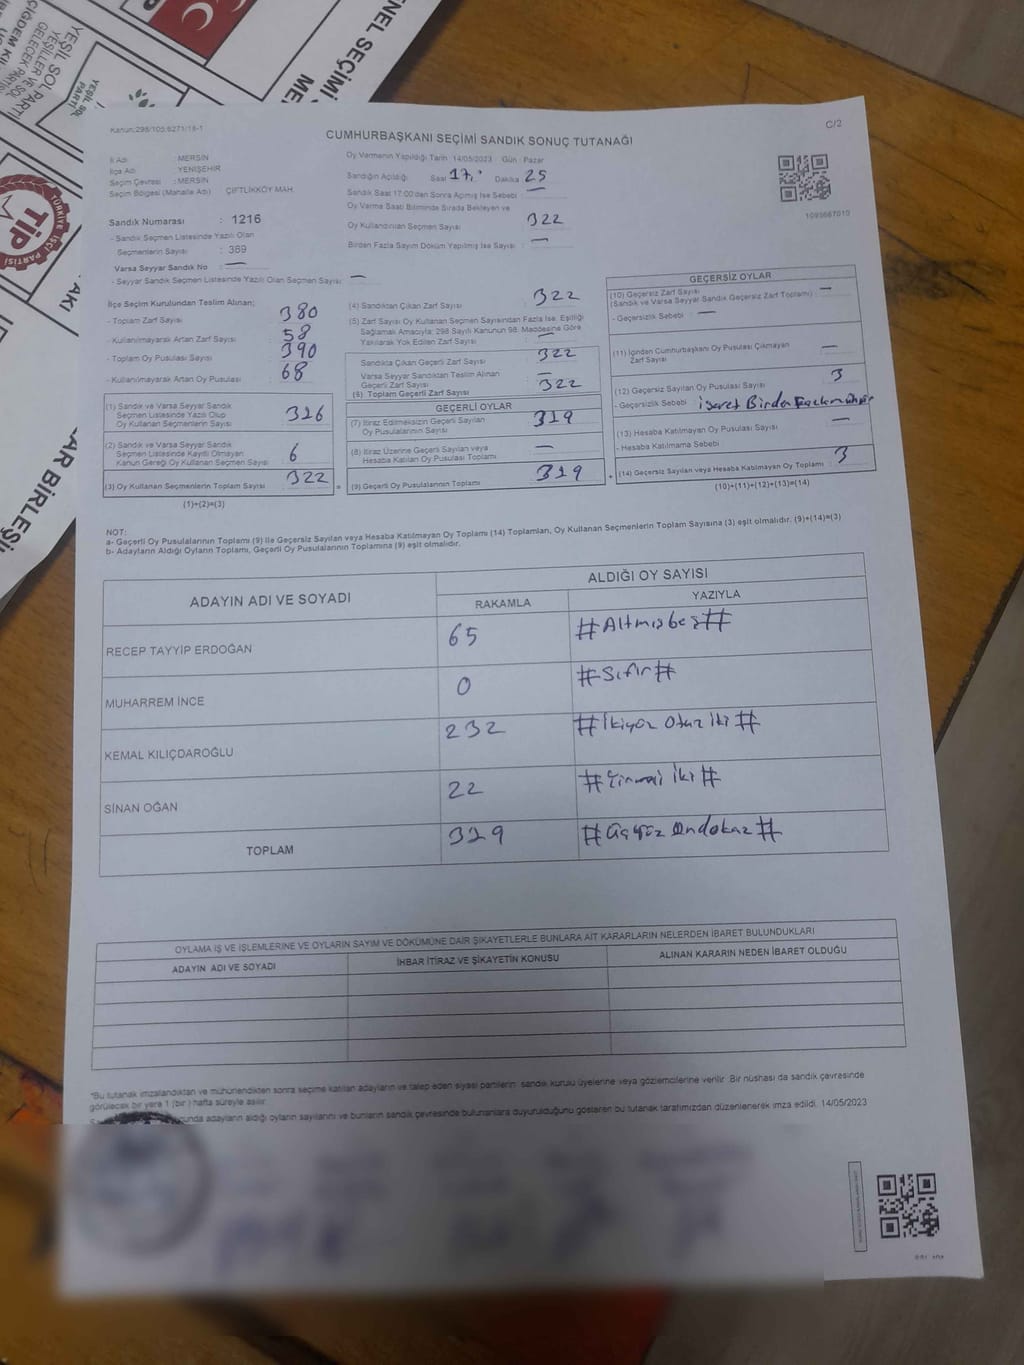 ENEL SEÇİMİ
YEŞİL SOL PARTİ
YEŞİLLER VE SOL
GELECEK PARTİSİ
YEŞİL SOL
PARTİ
TÜRKİYE İŞÇİ PARTİSİ
TİP
AKI
AR BİRLEŞİ
Kanun:298/105;6271/18-1
C/2
CUMHURBAŞKANI SEÇİMİ SANDIK SONUÇ TUTANAĞI
İl Adı : MERSİN
İlçe Adı : YENİŞEHİR
Seçim Çevresi : MERSİN
Seçim Bölgesi (Mahalle Adı) ÇİFTLİKKÖY MAH.
Sandık Numarası : 1216
- Sandık Seçmen Listesinde Yazılı Olan
Seçmenlerin Sayısı : 369
Varsa Seyyar Sandık No : —
- Seyyar Sandık Seçmen Listesinde Yazılı Olan Seçmen Sayısı : —
Oy Vermenin Yapıldığı Tarih 14/05/2023 Gün : Pazar
Sandığın Açıldığı : Saat 17 Dakika 25
Sandık Saat 17:00'den Sonra Açılmış İse Sebebi : —
Oy Verme Saati Bitiminde Sırada Bekleyen ve
Oy Kullandırılan Seçmen Sayısı : 322
Birden Fazla Sayım Döküm Yapılmış İse Sayısı : —
İlçe Seçim Kurulundan Teslim Alınan;
- Toplam Zarf Sayısı 380
- Kullanılmayarak Artan Zarf Sayısı 58
- Toplam Oy Pusulası Sayısı 390
- Kullanılmayarak Artan Oy Pusulası 68
(1) Sandık ve Varsa Seyyar Sandık
Seçmen Listesinde Yazılı Olup
Oy Kullanan Seçmenlerin Sayısı 316
(2) Sandık ve Varsa Seyyar Sandık
Seçmen Listesinde Kayıtlı Olmayan
Kanun Gereği Oy Kullanan Seçmen Sayısı 6
(3) Oy Kullanan Seçmenlerin Toplam Sayısı 322
(1)+(2)=(3)
(4) Sandıktan Çıkan Zarf Sayısı 322
(5) Zarf Sayısı Oy Kullanan Seçmen Sayısından Fazla İse, Eşitliği
Sağlamak Amacıyla; 298 Sayılı Kanunun 98. Maddesine Göre
Yakılarak Yok Edilen Zarf Sayısı —
Sandıkta Çıkan Geçerli Zarf Sayısı 322
Varsa Seyyar Sandıktan Teslim Alınan
Geçerli Zarf Sayısı —
(6) Toplam Geçerli Zarf Sayısı 322
GEÇERLİ OYLAR
(7) İtiraz Edilmeksizin Geçerli Sayılan
Oy Pusulalarının Sayısı 319
(8) İtiraz Üzerine Geçerli Sayılan veya
Hesaba Katılan Oy Pusulası Toplamı —
(9) Geçerli Oy Pusulalarının Toplamı 319
GEÇERSİZ OYLAR
(10) Geçersiz Zarf Sayısı
(Sandık ve Varsa Seyyar Sandık Geçersiz Zarf Toplamı) —
- Geçersizlik Sebebi : —
(11) İçinden Cumhurbaşkanı Oy Pusulası Çıkmayan
Zarf Sayısı —
(12) Geçersiz Sayılan Oy Pusulası Sayısı 3
- Geçersizlik Sebebi : işaret Birden Fazla mühür
(13) Hesaba Katılmayan Oy Pusulası Sayısı —
- Hesaba Katılmama Sebebi
(14) Geçersiz Sayılan veya Hesaba Katılmayan Oy Toplamı 3
(10)+(11)+(12)+(13)=(14)
NOT:
a- Geçerli Oy Pusulalarının Toplamı (9) ile Geçersiz Sayılan veya Hesaba Katılmayan Oy Toplamı (14) Toplamları, Oy Kullanan Seçmenlerin Toplam Sayısına (3) eşit olmalıdır. (9)+(14)=(3)
b- Adayların Aldığı Oyların Toplamı, Geçerli Oy Pusulalarının Toplamına (9) eşit olmalıdır.
ADAYIN ADI VE SOYADI ALDIĞI OY SAYISI
RAKAMLA YAZIYLA
RECEP TAYYİP ERDOĞAN 65 #Altmışbeş#
MUHARREM İNCE 0 #Sıfır#
KEMAL KILIÇDAROĞLU 232 #İkiyüz Otuz İki#
SİNAN OĞAN 22 #Yirmi İki#
TOPLAM 319 #Üçyüz Ondokuz#
OYLAMA İŞ VE İŞLEMLERİNE VE OYLARIN SAYIM VE DÖKÜMÜNE DAİR ŞİKAYETLERLE BUNLARA AİT KARARLARIN NELERDEN İBARET BULUNDUKLARI
ADAYIN ADI VE SOYADI İHBAR İTİRAZ VE ŞİKAYETİN KONUSU ALINAN KARARIN NEDEN İBARET OLDUĞU
*Bu tutanak imzalandıktan ve mühürlendikten sonra seçime katılan adayların ve talep eden siyasi partilerin sandık kurulu üyelerine veya gözlemcilerine verilir. Bir nüshası da sandık çevresinde
görülecek bir yere 1 (bir) hafta süreyle asılır.
adayların aldığı oyların sayılarını ve bunların sandık çevresinde bulunanlara duyurulduğunu gösteren bu tutanak tarafımızdan düzenlenerek imza edildi. 14/05/2023